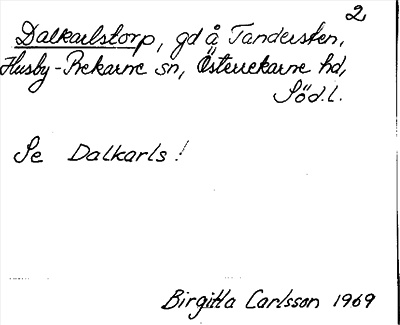 2
Dalkarlstorp, gd å Tandersten,
Husby-Rekarne sn, Österrekarne hd,
Söd.l.
Se Dalkarls!
Birgitta Carlsson 1969